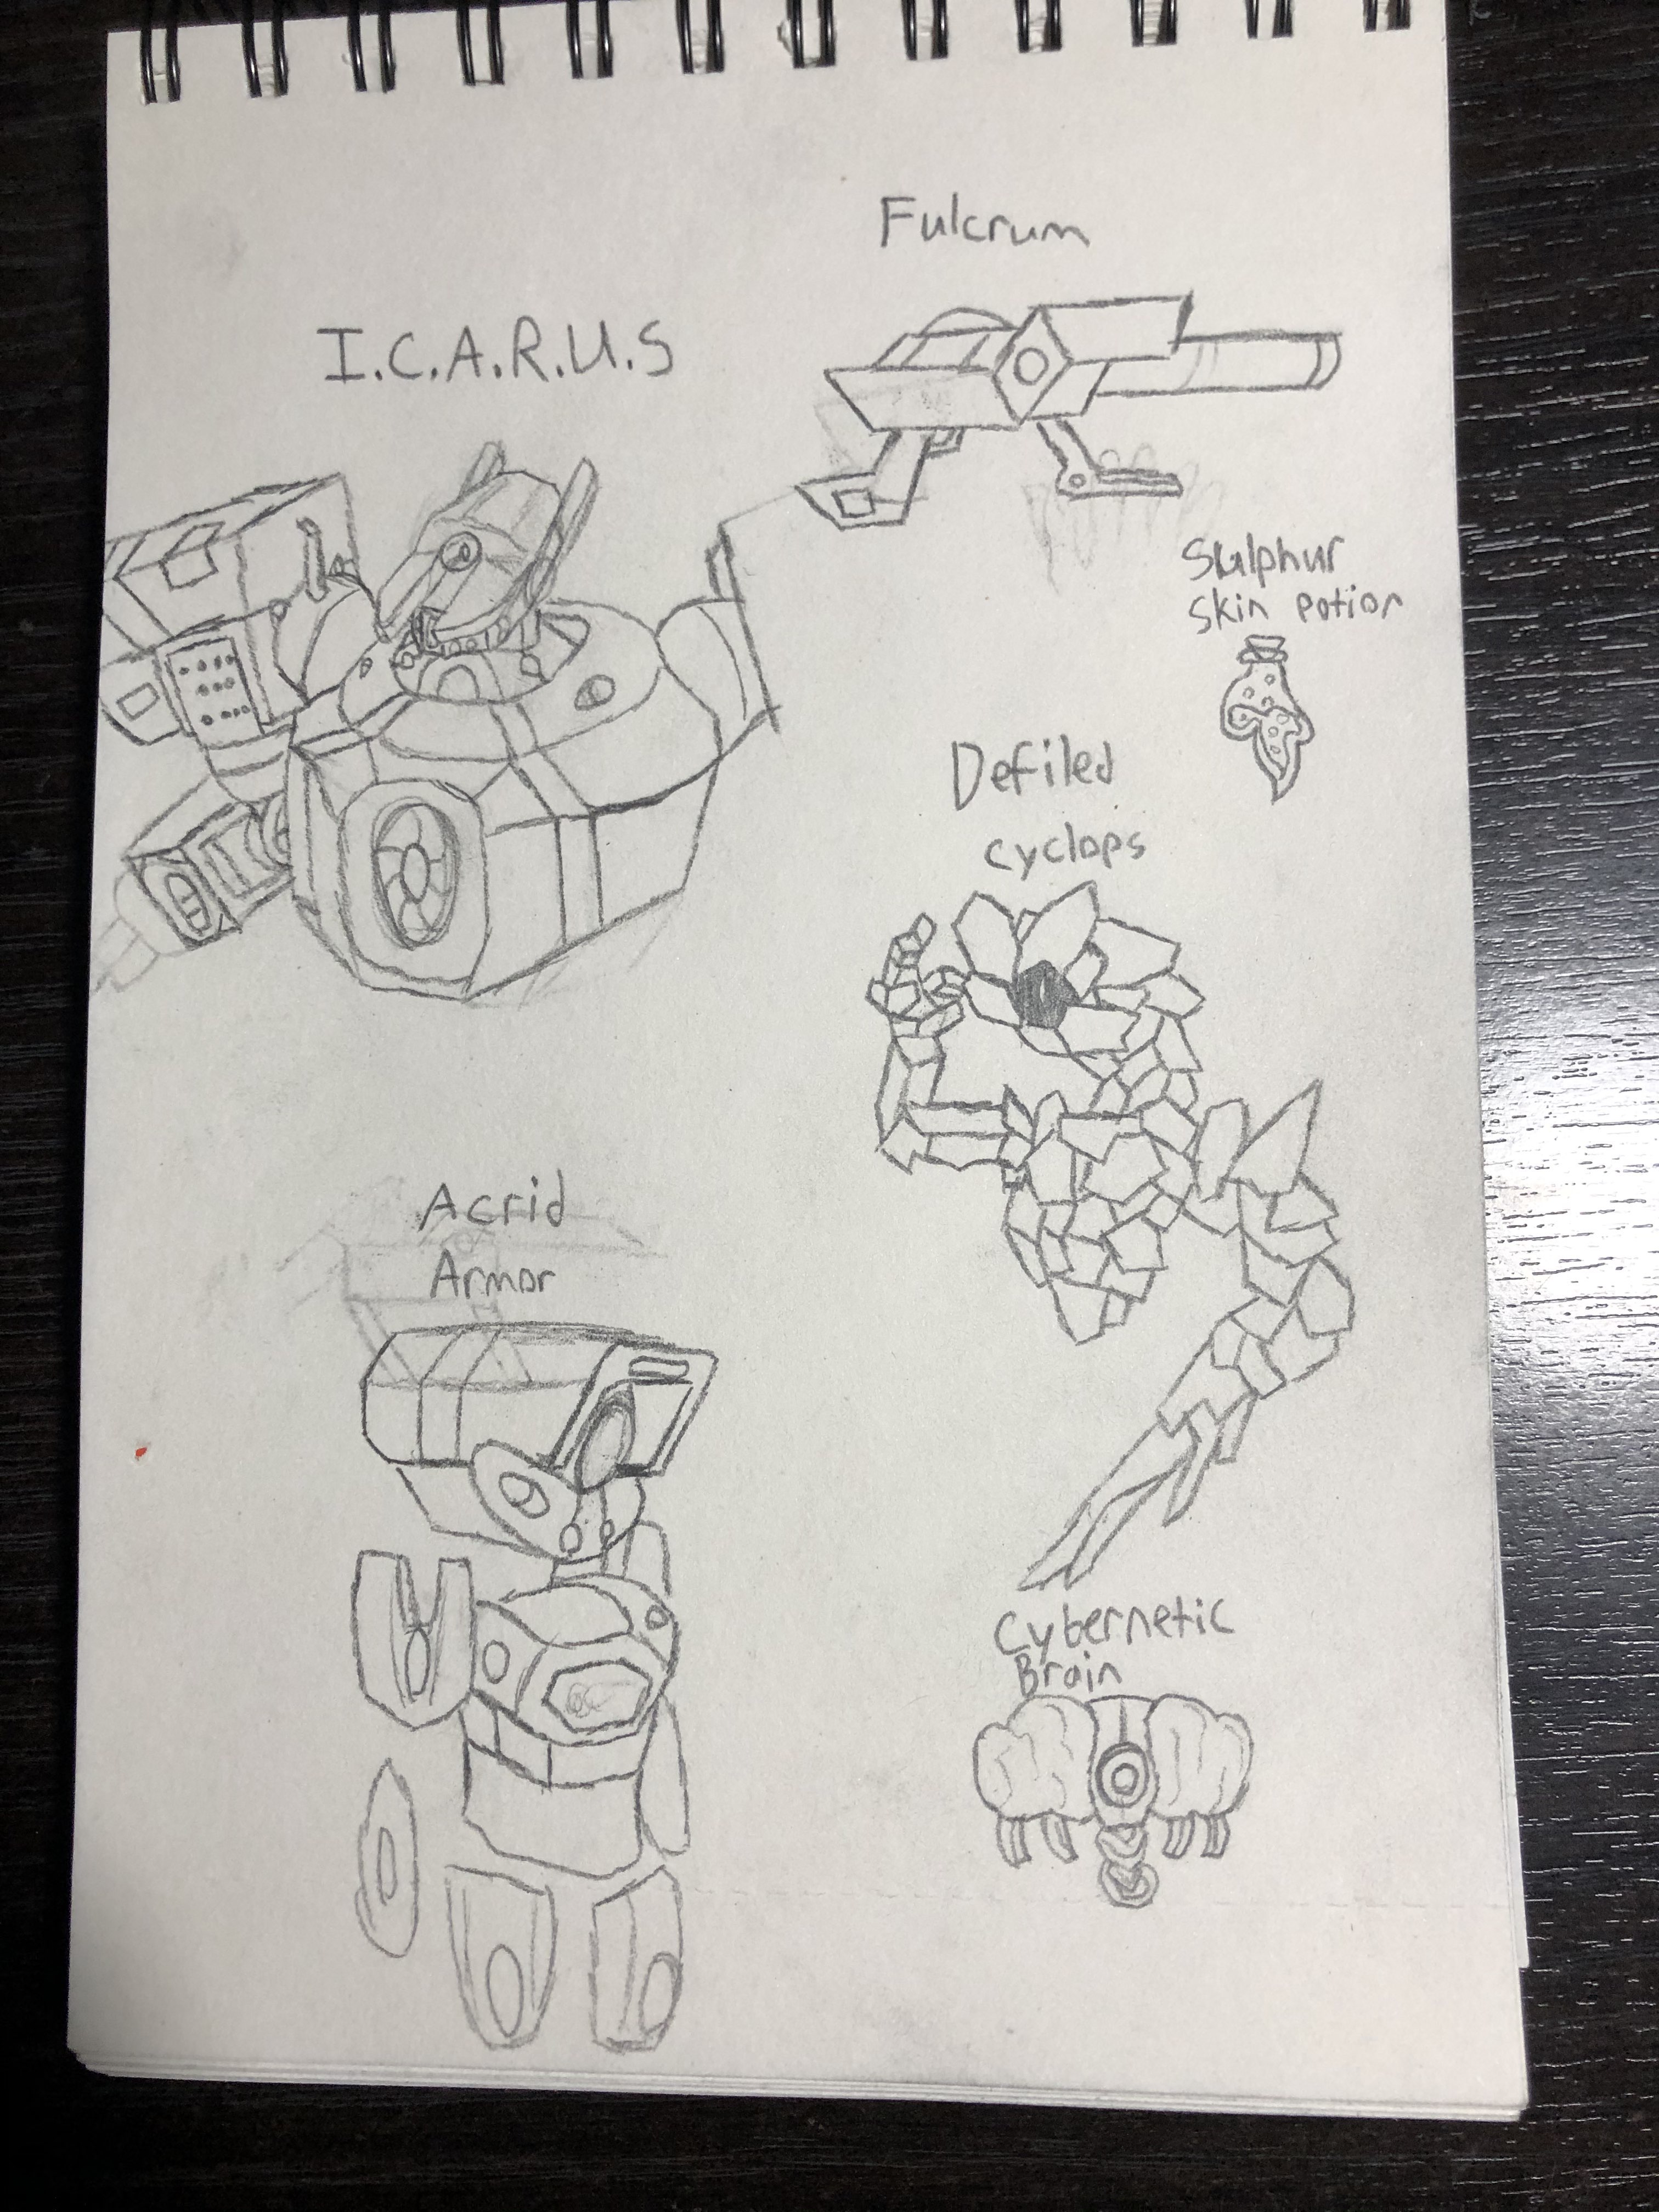 Fulcrum
I.C.A.R.U.S
Sulphur
Skin potion
Defiled
cyclops
Acrid
Armor
Cybernetic
Brain